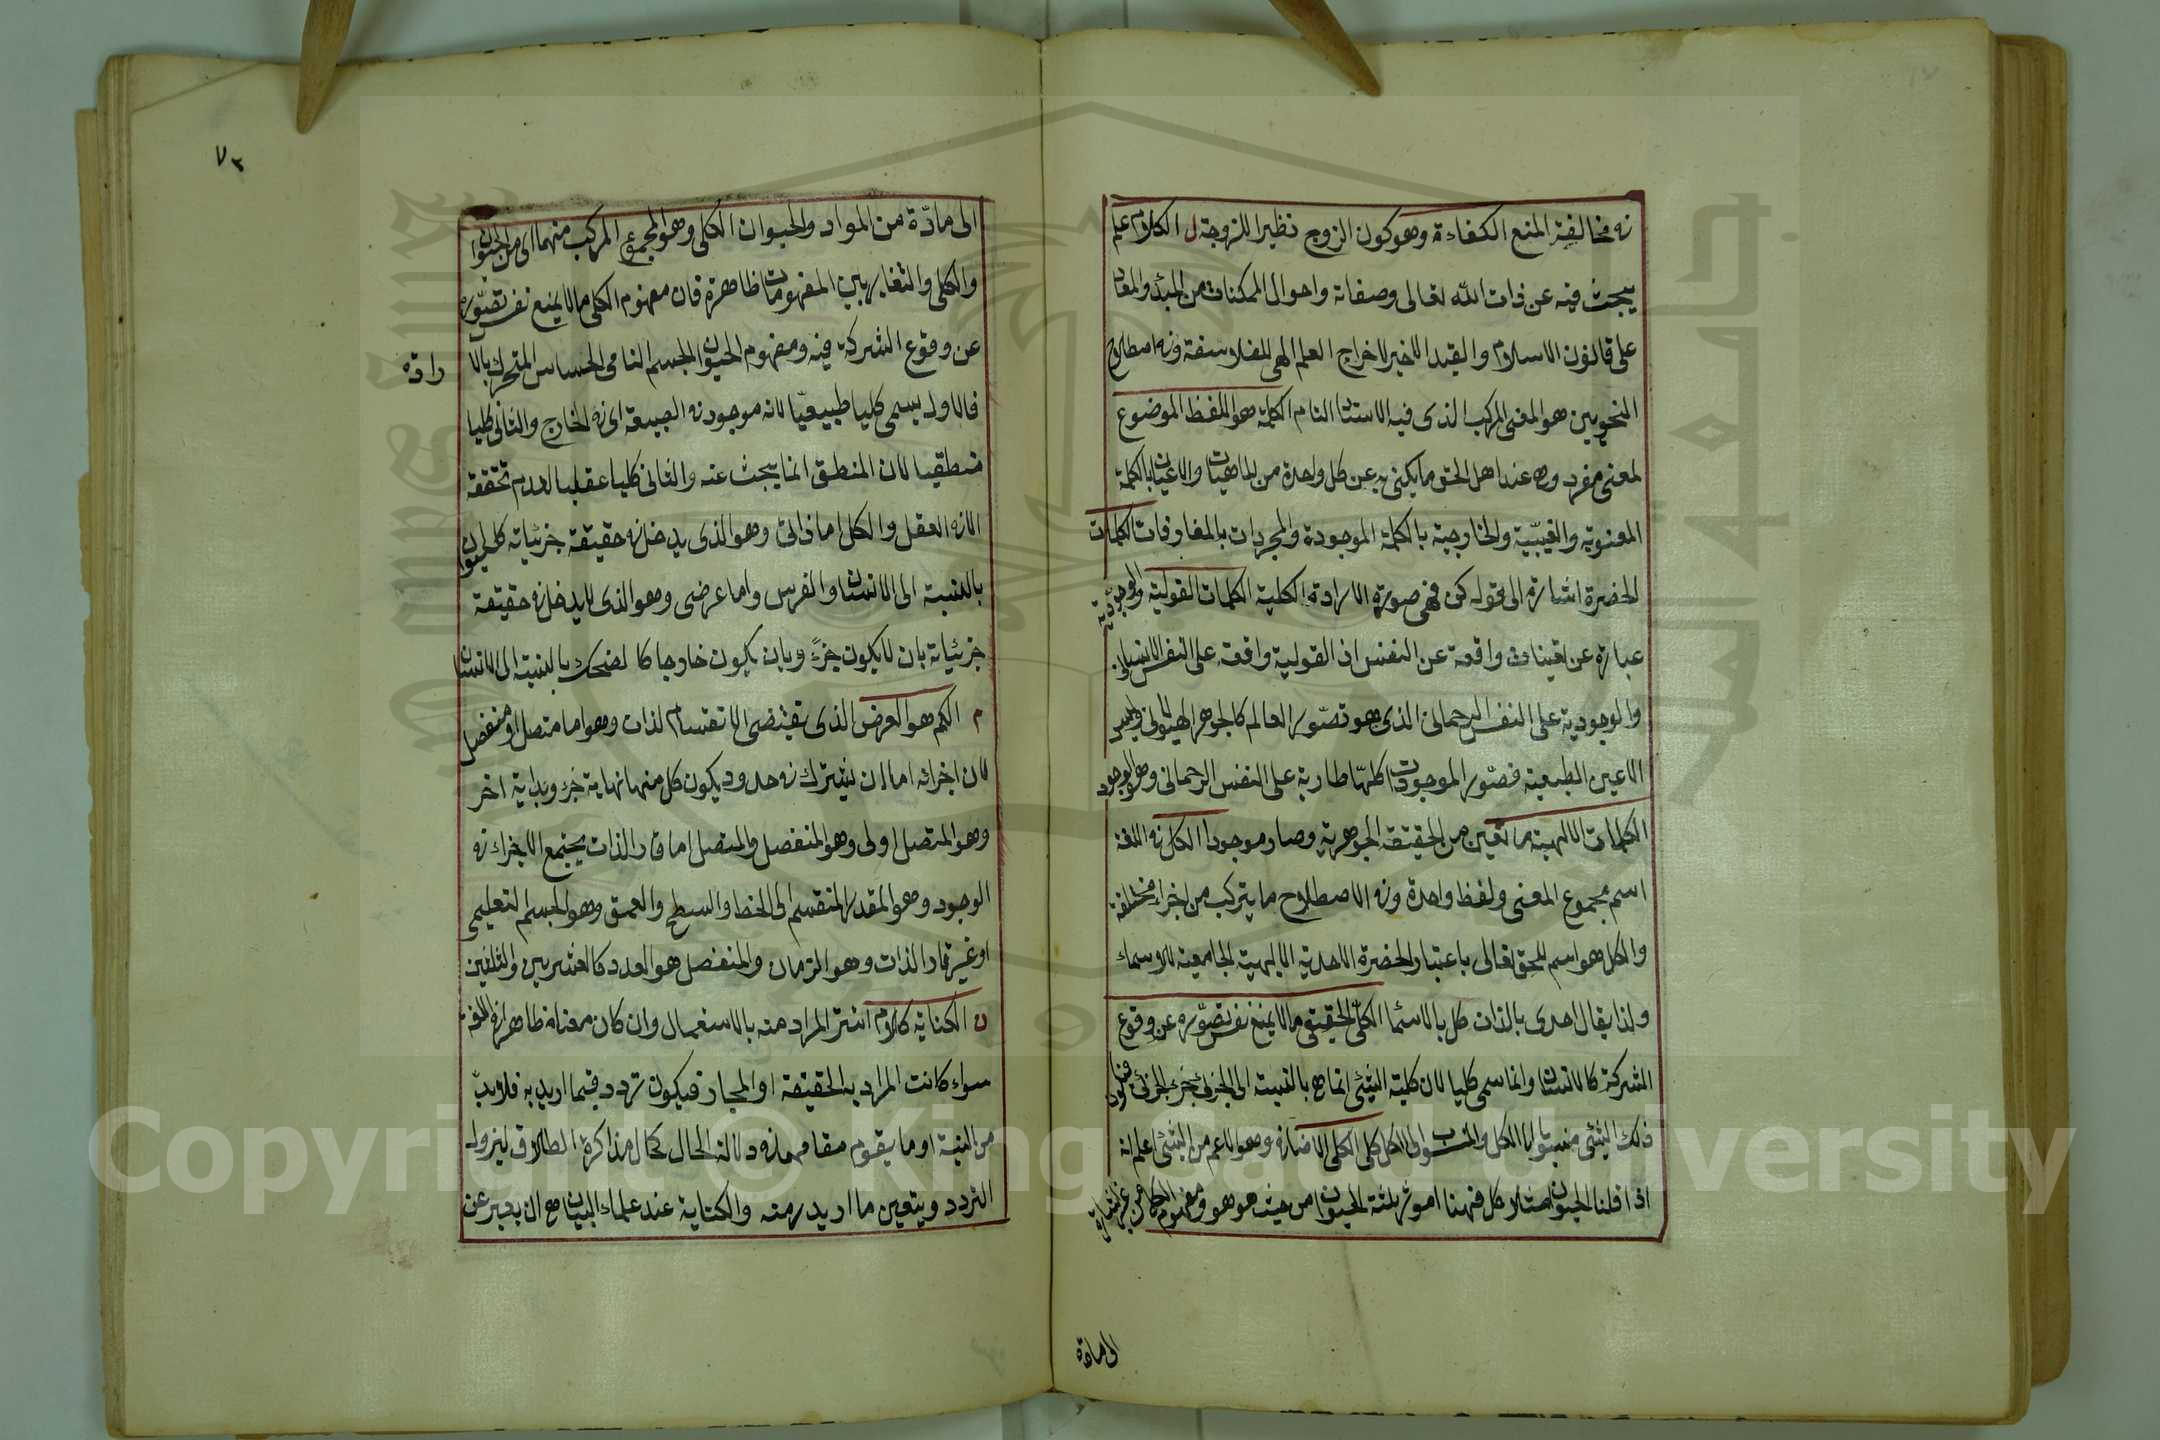 فى مخالفة المنع الكفاءة وهو كون الزوج نظيرا للزوجة ل الكلام علم
يبحث فيه عن ذات الله تعالى وصفاته واحوال الممكنات من المبدء والمعاد
على قانون الاسلام والقيد الاخير لاخراج العلم الهى للفلاسفة وفى اصطلاح
النحويين هو المعنى المركب الذى فيه الاسناد التام الكلمة هو اللفظ الموضوع
لمعنى مفرد وهى عند اهل الحق ما يكنى به عن كل واحدة من الماهيات والاعيان بالكلمة
المعنوية والغيبية والخارجية بالكلمة الموجودة والمجردات بالمفارقات الكلمات
الحضرة اشارة الى قوله كن فهى صورة الارادة الكلية الكلمات القولية والوجودية
عبارة عن تعينات واقعة عن النفس اذ القولية واقعة على النفس الانسانى
والوجودية على النفس الرحمانى الذى هو تصور العالم كالجوهر الهيولانى وليس
الا عين الطبيعة فصور الموجودات كلها طارية على النفس الرحمانى وهو الوجود
الكلمات الالهية ما تعين من الحقيقة الجوهرية وصار موجودا الكل فى اللغة
اسم مجموع المعنى ولفظ واحدة وفى الاصطلاح ما يتركب من اجزاء مختلفة
والكل هو اسم للحق تعالى باعتبار الحضرة الاحدية الالهية الجامعية للاسماء
ولذا يقال احدى بالذات كل بالاسماء الكلى الحقيقى مالا يمنع نفس تصوره عن وقوع
الشركة كالانسان وانما سمى كليا لان كلية الشئ انما هى بالنسبة الى الجزئى جزء الجزئى فيكون
ذلك الشئ منسوبا الى الكل والمنسوب الى الكل كلى الكلى الاضافى وهو الاعم من الشئ اعلم انه
اذا قلنا الحيوان مثلا كلى فهنا امور ثلثة الحيوان من حيث هو هو ومفهوم الكلى من غير اشارة
الى مادة
٧٣
الى مادّة من المواد والحيوان الكلى وهو المجموع المركب منهما اى من الحيوان
والكلى والتغاير بين المفهومات ظاهرة فان مفهوم الكلى مالا يمنع نفس تصوّره
عن وقوع الشركة فيه ومفهوم الحيوان الجسم النامى الحساس المتحرك بالا
رادة
فالاول يسمى كليا طبيعيّا لانه موجود فى الطبيعة اى فى الخارج والثانى كليا
منطقيا لان المنطق انما يبحث عنه والثانى كليا عقليا لعدم تحققه
الا فى العقل والكل اما ذاتى وهو الذى يدخل فى حقيقة جزئياته كالحيوان
بالنسبة الى الانسان والفرس واما عرضى وهو الذى لا يدخل فى حقيقة
جزئياته بان لا يكون جزءً وبان يكون خارجا كالضحك بالنسبة الى الانسان
م الكم هو العرض الذى يقتضى الانقسام لذات وهو اما متصل او منفصل
لان اجزائه اما ان يشترك فى حدود يكون كل منها نهاية جزء وبداية اخر
وهو المتصل اولى وهو المنفصل والمتصل اما قار الذات يجتمع الاجزاء فى
الوجود وهو المقدار المنقسم الى الخط والسطح والعمق وهو الجسم التعليمى
او غير قار الذات وهو الزمان والمنفصل هو العدد كالعشرين والثلثين
ن الكناية كلام استتر المراد منه بالاستعمال وان كان معناه ظاهر فى اللغة
سواء كانت المراد به الحقيقة او المجاز فيكون تردد فيما اريد به فلا بدّ
من النية او ما يقوم مقامها من دلالة الحال كحال مذاكرة الطلاق ليزول
التردد ويتعين ما اريد منه والكناية عند علماء البيان هى ان يعبر عن
Copyright © King Saud University